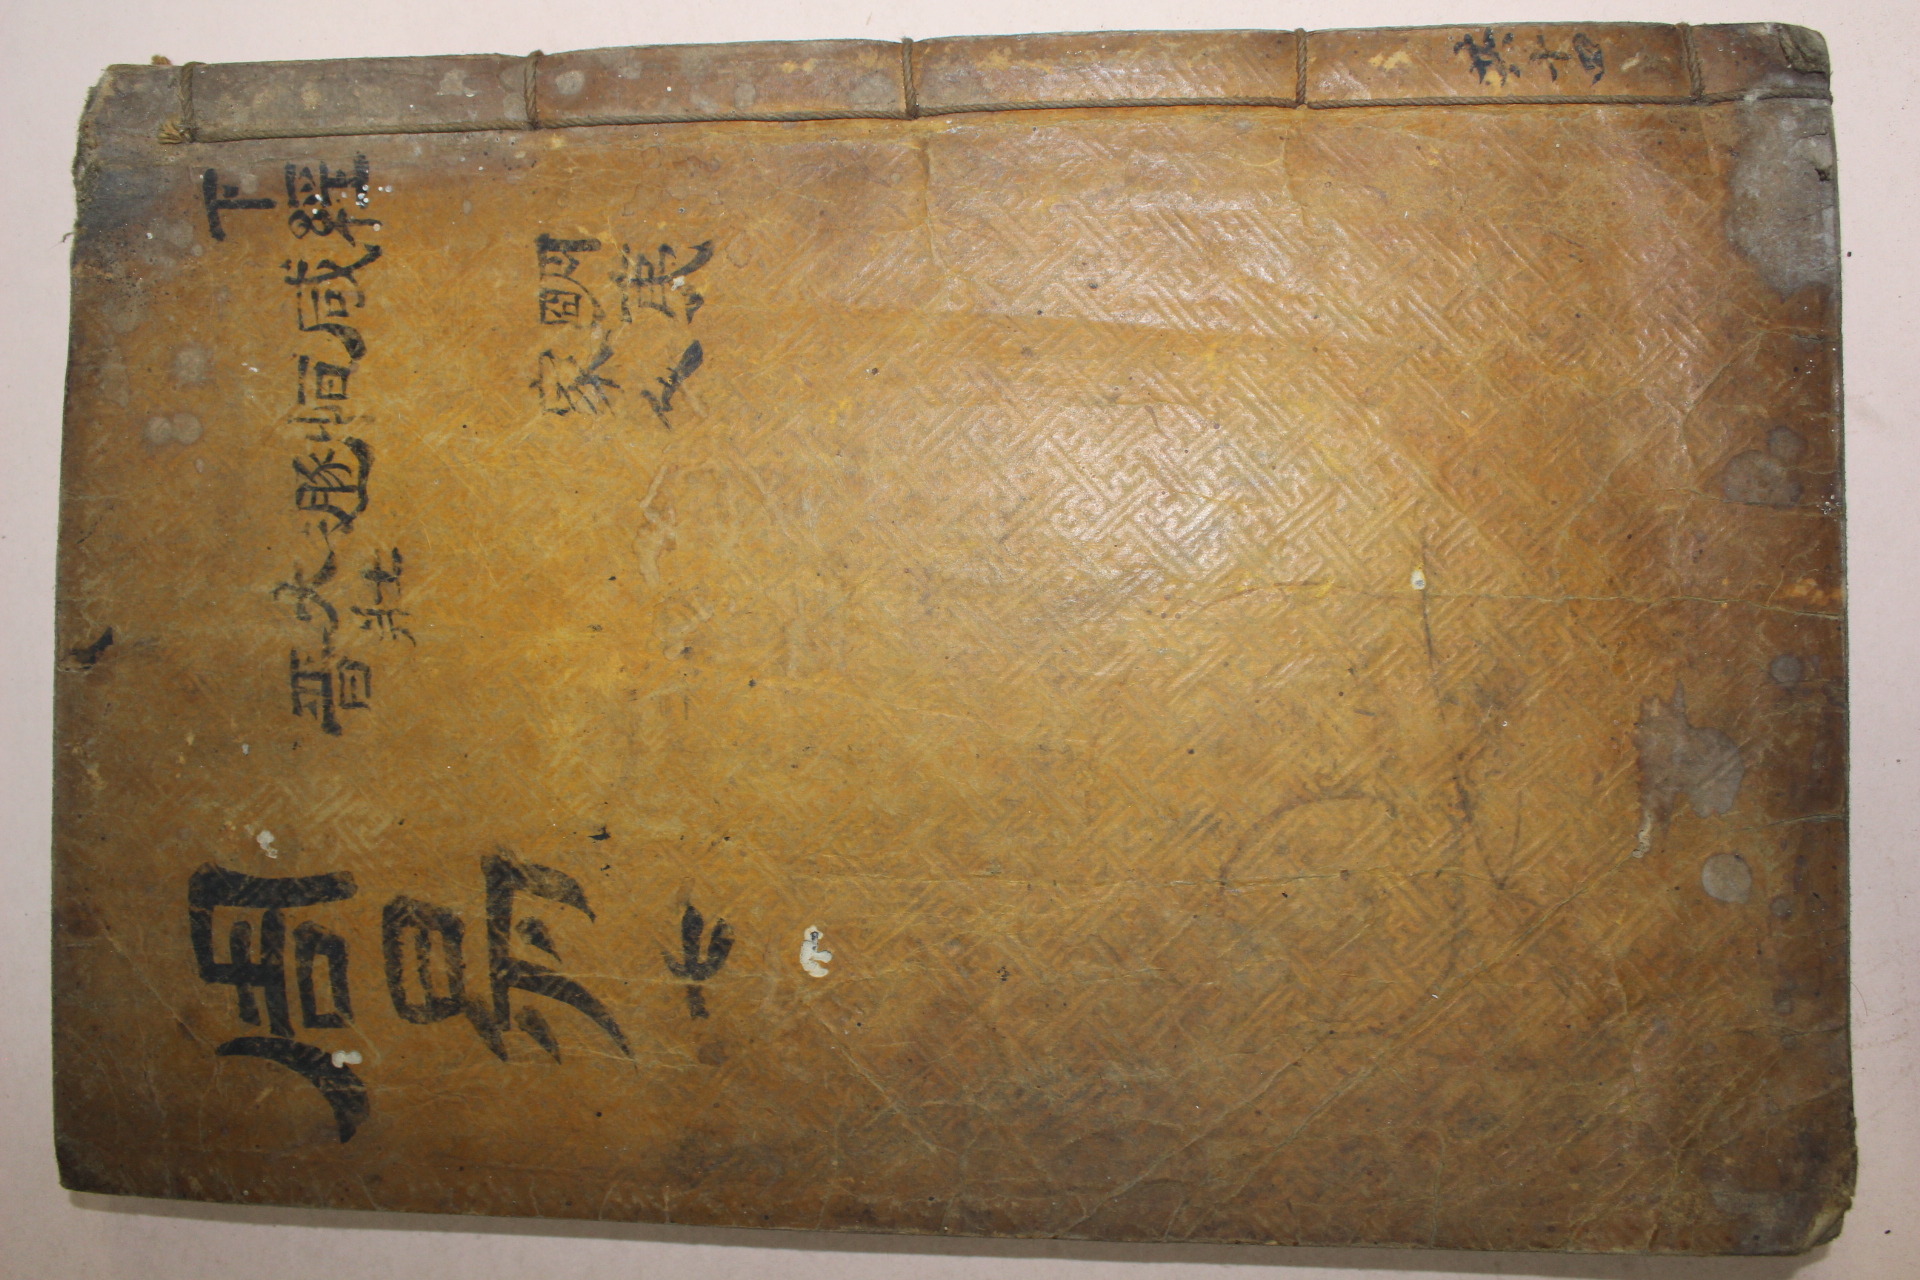 下經
咸
恒
遯
大壯
晋
明夷
家人
周易 七
共十四